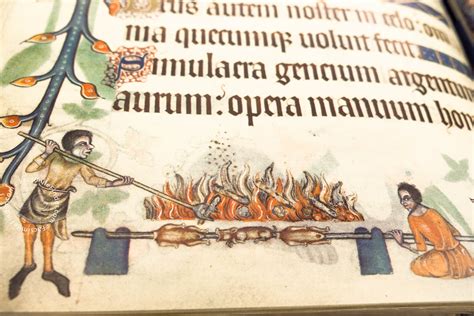 us autem noster in celo: om
nia quecumq; voluit fecit.
Simulacra gencium argentum
aurum: opera manuum hom